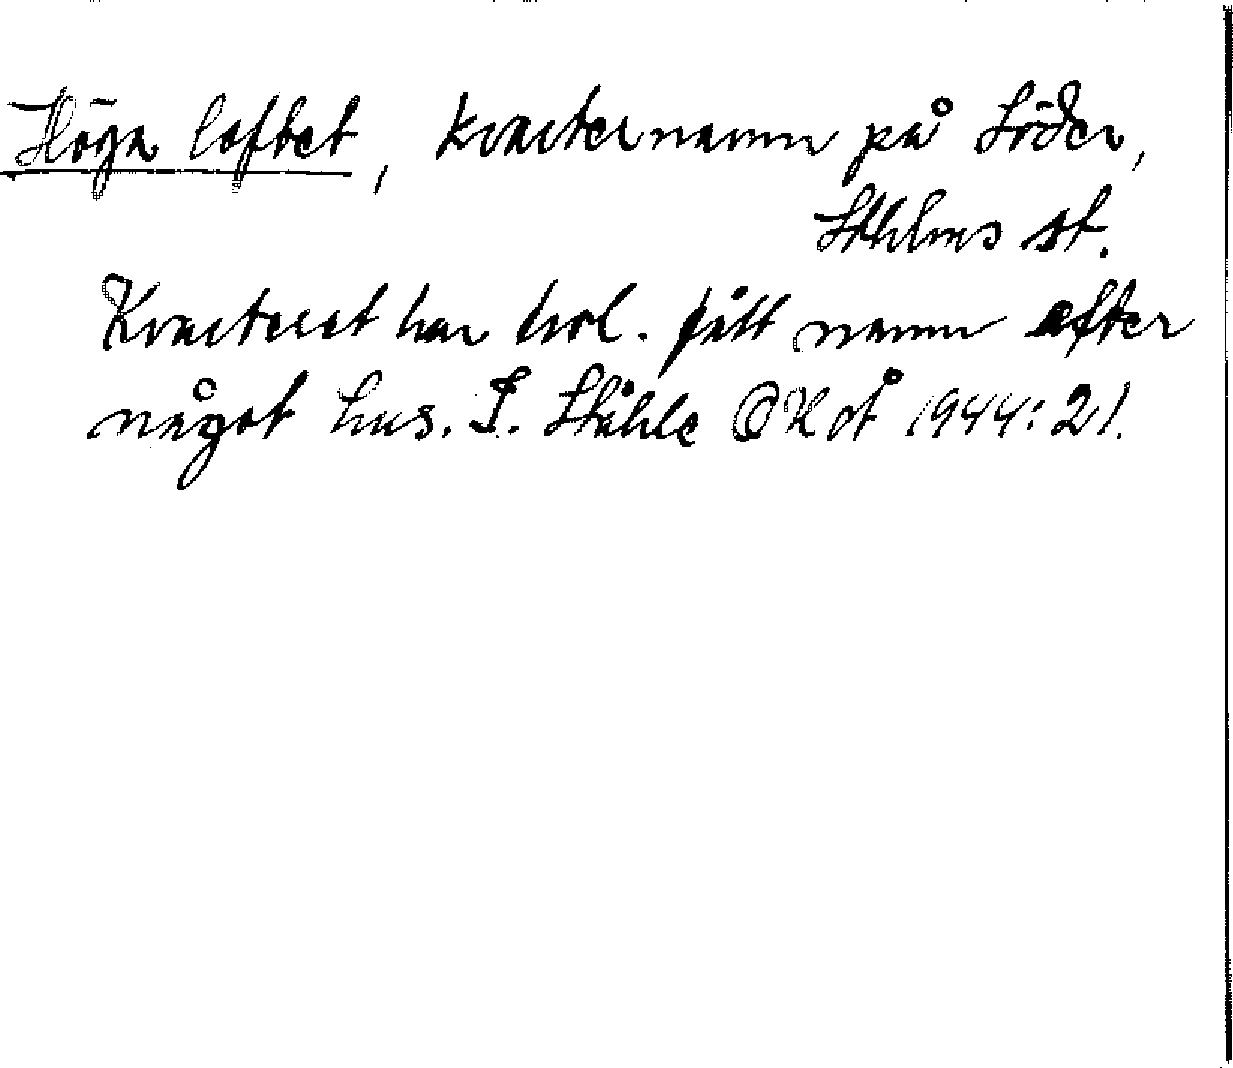 Höga loftet, kvarternamn på Söder,
Sthlms st.
Kvarteret har trol. fått namn efter
något hus. I. Ståhle 1944:21.